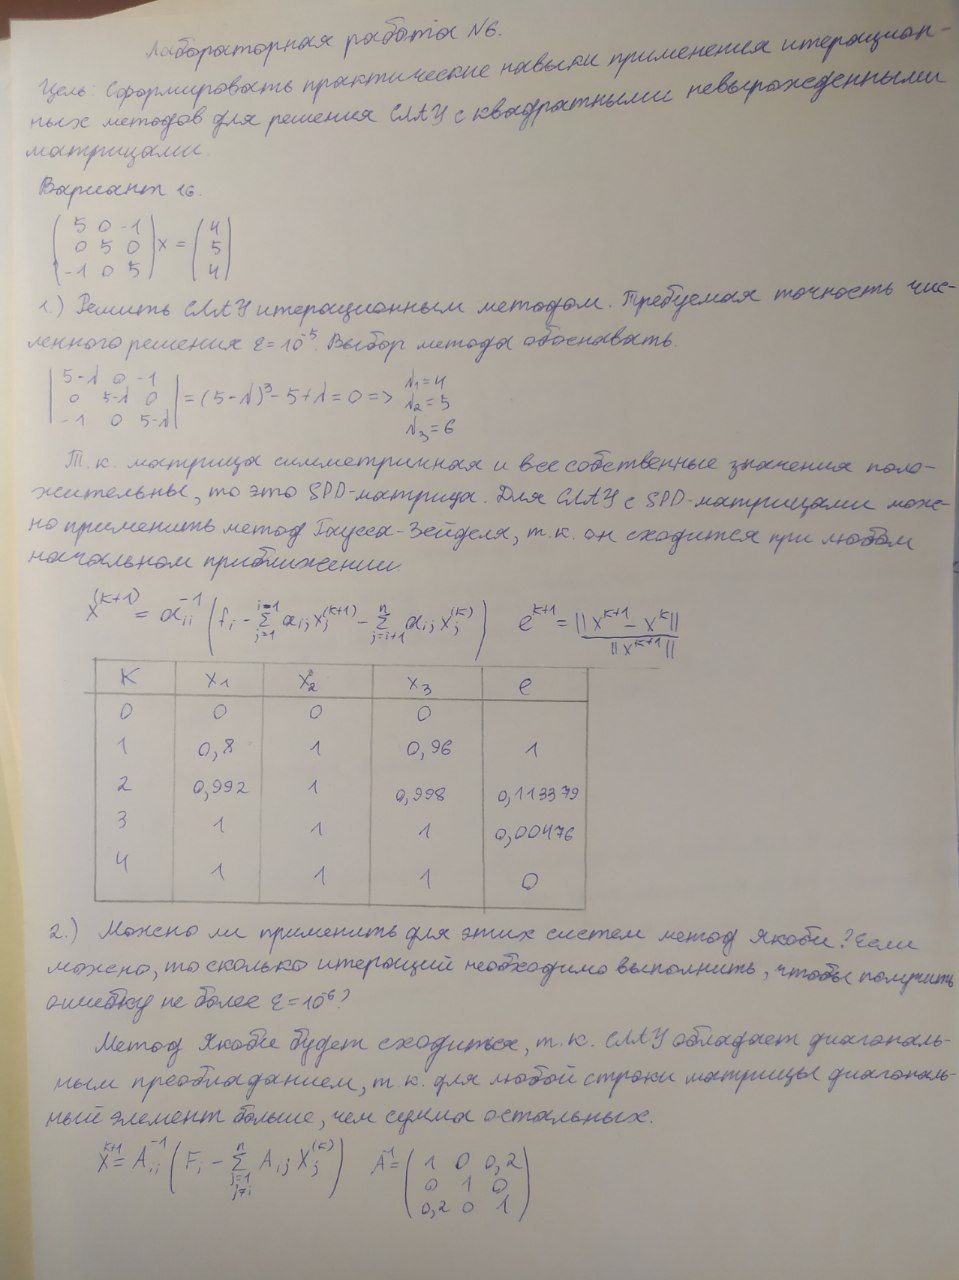 Лабораторная работа №6.
Цель: Сформировать практические навыки применения итерацион-
ных методов для решения СЛАУ с квадратными невырожденными
матрицами.
Вариант 16.
( 5 0 -1 ) ( 4 )
( 0 5 0 ) x = ( 5 )
( -1 0 5 ) ( 4 )
1.) Решить СЛАУ итерационным методом. Требуемая точность чис-
ленного решения ε = 10⁻⁵. Выбор метода обосновать.
| 5-λ 0 -1 | λ₁ = 4
| 0 5-λ 0 | = (5-λ)³ - 5 + λ = 0 => λ₂ = 5
| -1 0 5-λ | λ₃ = 6
Т.к. матрица симметричная и все собственные значения поло-
жительны, то это SPD-матрица. Для СЛАУ с SPD-матрицами мож-
но применить метод Гаусса-Зейделя, т.к. он сходится при любом
начальном приближении.
x^(k+1) = a_ii^-1 ( f_i - Σ_{j=1}^{i-1} a_ij x_j^(k+1) - Σ_{j=i+1}^{n} a_ij x_j^(k) ) e^{k+1} = ||x^{k+1} - x^k|| / ||x^{k+1}||
K x₁ x₂ x₃ e
0 0 0 0
1 0,8 1 0,96 1
2 0,992 1 0,998 0,113379
3 1 1 1 0,00476
4 1 1 1 0
2.) Можно ли применить для этих систем метод Якоби? Если
можно, то сколько итераций необходимо выполнить, чтобы получить
ошибку не более ε = 10⁻⁶?
Метод Якоби будет сходиться, т.к. СЛАУ обладает диагональ-
ным преобладанием, т.к. для любой строки матрицы диагональ-
ный элемент больше, чем сумма остальных.
x^{k+1} = A_ii^-1 ( F_i - Σ_{j=1, j≠i}^{n} A_ij X_j^(k) ) A^-1 = ( 1 0 0,2 )
( 0 1 0 )
( 0,2 0 1 )